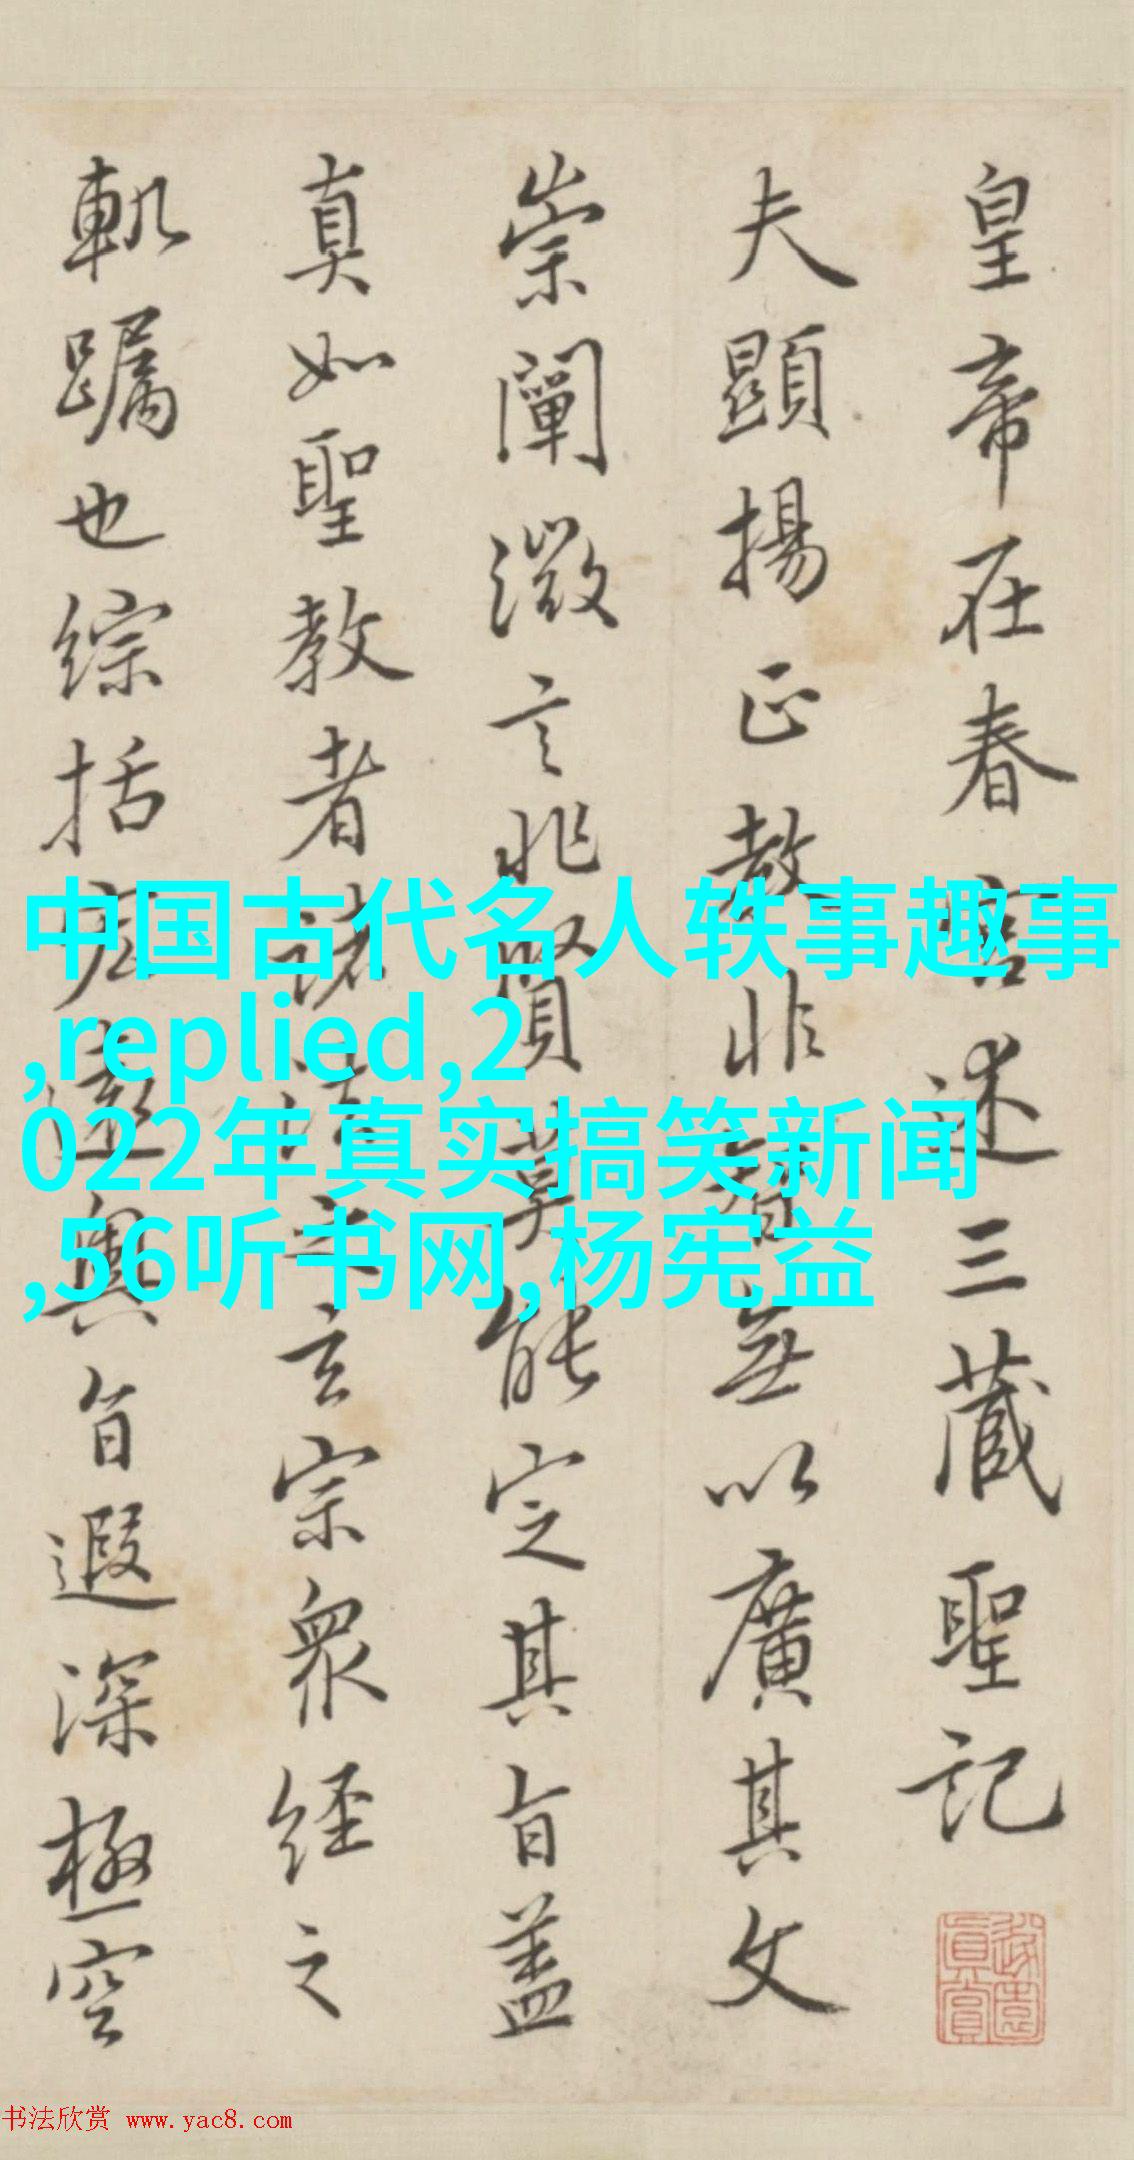 皇帝在春宮述三蔵聖記
夫顯揚正教非智無以廣其文
崇闡微言非賢莫能定其旨盖
真如聖教者諸法之玄宗衆経之
軌躅也綜括宏遠奥旨遐深極空
中国古代名人轶事趣事
,replied,2
022年真实搞笑新闻
,56听书网,杨宪益
书法欣赏 www.yac8.com